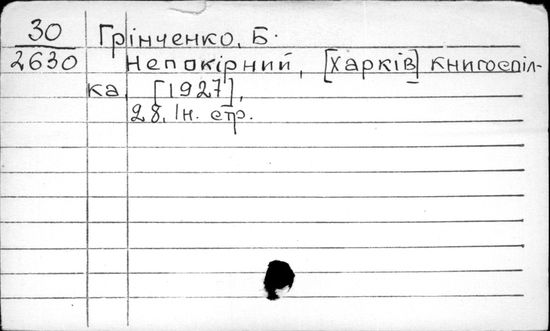 30 Грінченко, Б.
2630 Непокірний, [Харків] книгоспіл-
ка, [1927],
28, Iн. стр.